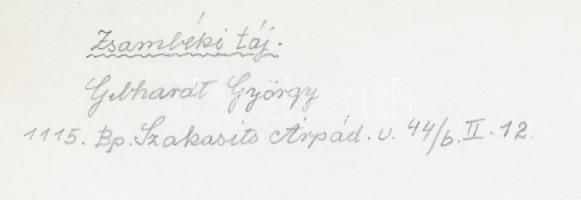 Zsámbéki táj.
Gebhardt György
1115. Bp. Szakasits Árpád. u. 44/b. II. 12.